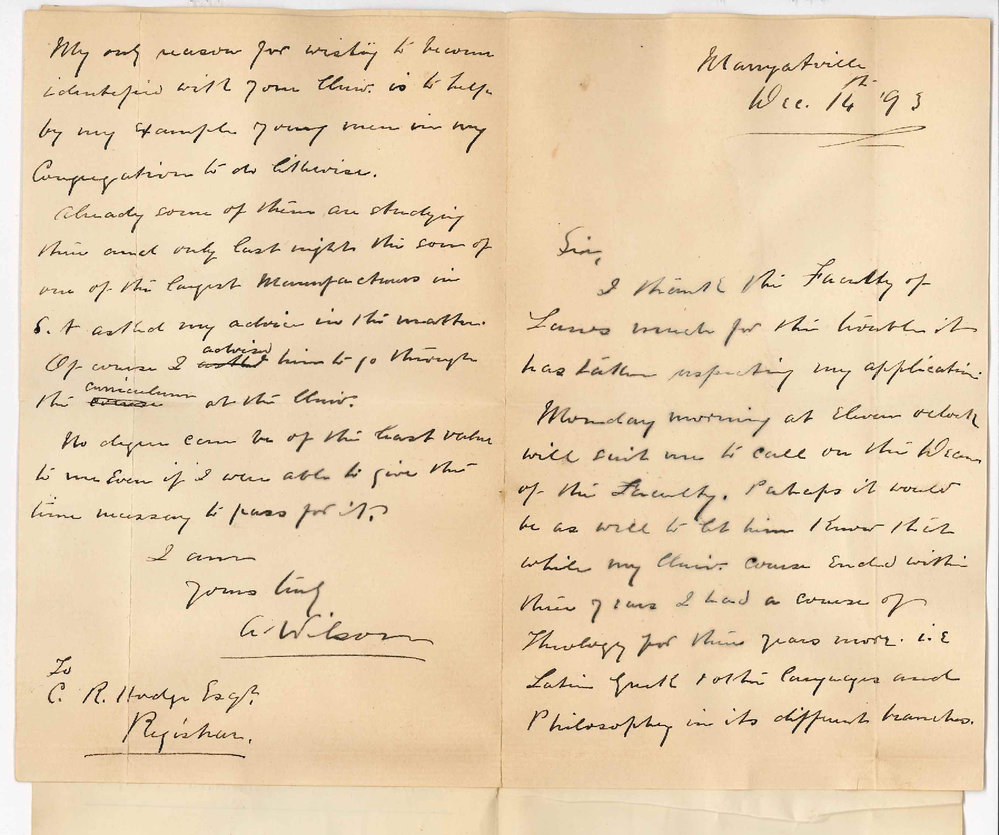 Marryatville
Dec. 14th '93
Sir,
I thank the Faculty of
Laws much for the trouble it
has taken respecting my application.
Monday morning at Eleven oclock
will suit me to call on the Dean
of the Faculty. Perhaps it would
be as well to let him Know that
while my Univ. course Ended within
three years I had a course of
Theology for three years more. i.e
Latin Greek & other languages and
Philosophy in its different branches.
My only reason for wishing to become
identified with your Univ. is to help
by my Example young men in my
Congregation to do likewise.
Already some of them are studying
there and only last night the son of
one of the largest Manufacturers in
S. A asked my advice in the matter.
Of course I asked advised him to go through
the course curriculum at the Univ.
No degree can be of the least value
to me Even if I were able to give the
time necessary to pass for it.
I am
Yours truly
A. Wilson
To
C. R. Hodge Esqr.
Registrar.